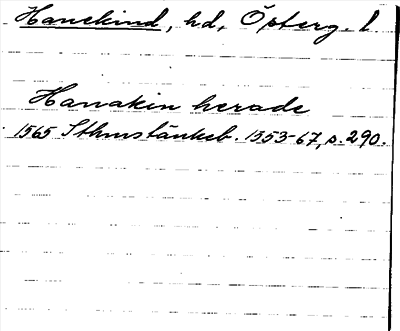 Hanekind, hd, Österg. l.
Hanakin herade
1565 Sthmstänkeb. 1553-67, s. 290.